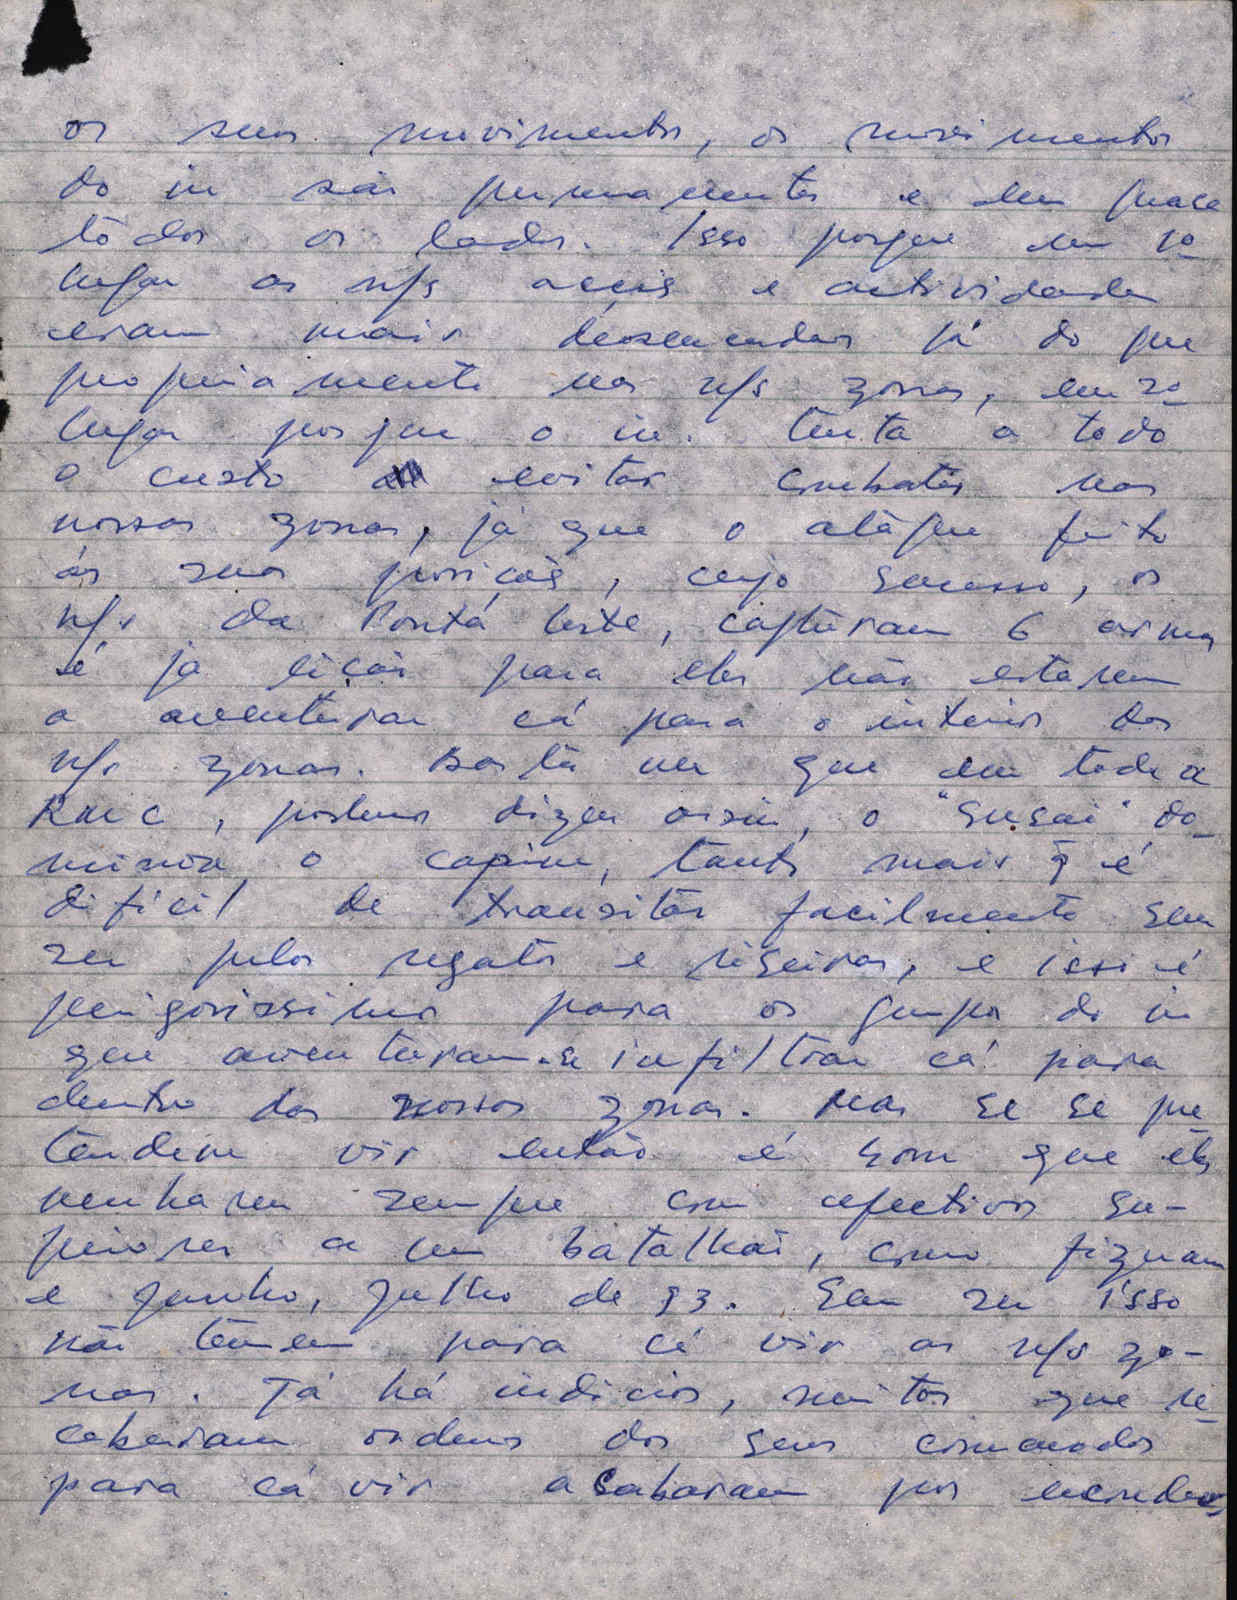 os seus movimentos, os movimentos
do in são permanentes e em quase
todos os lados. Isso porque em 1º
lugar as n/s acções e actividades
eram mais desencadeadas já do que
propriamente nas n/s zonas, em 2º
lugar porque o in. tenta a todo
o custo evitar combates nas
nossas zonas, já que o ataque feito
às suas posições, cujo sucesso, os
n/s da Ponta Leste, capturam 6 armas
é já lição para eles não estarem
a aventurar cá para o interior das
n/s zonas. Basta ver que em toda a
, podemos dizer assim, o do-
minou o capim, tanto mais q̃ é
difícil de transitar facilmente sem
ser pelos regatos e ribeiras, e isso é
perigosíssimo para os grupos do in
que aventuram-se infiltrar cá para
dentro das nossas zonas. Mas se se pre-
tendem vir então é bom que eles
venham sempre com efectivos su-
periores a um batalhão, como fizeram
e Junho, Julho de 83. Sem ser isso
não temem para cá vir as n/s zo-
nas. Já há indícios, muitos que re-
ceberam ordens dos seus comandos
para cá vir acabaram por